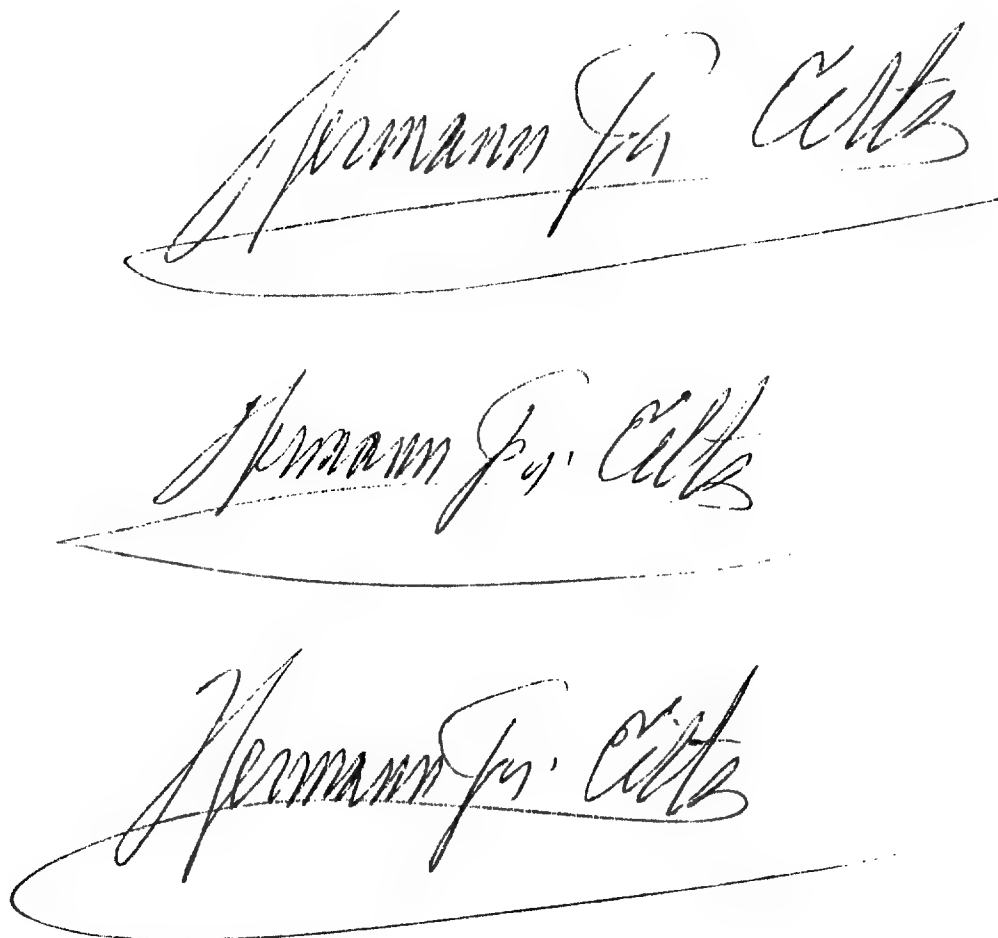 Hermann Fr. Cilts
Hermann Fr. Cilts
Hermann Fr. Cilts